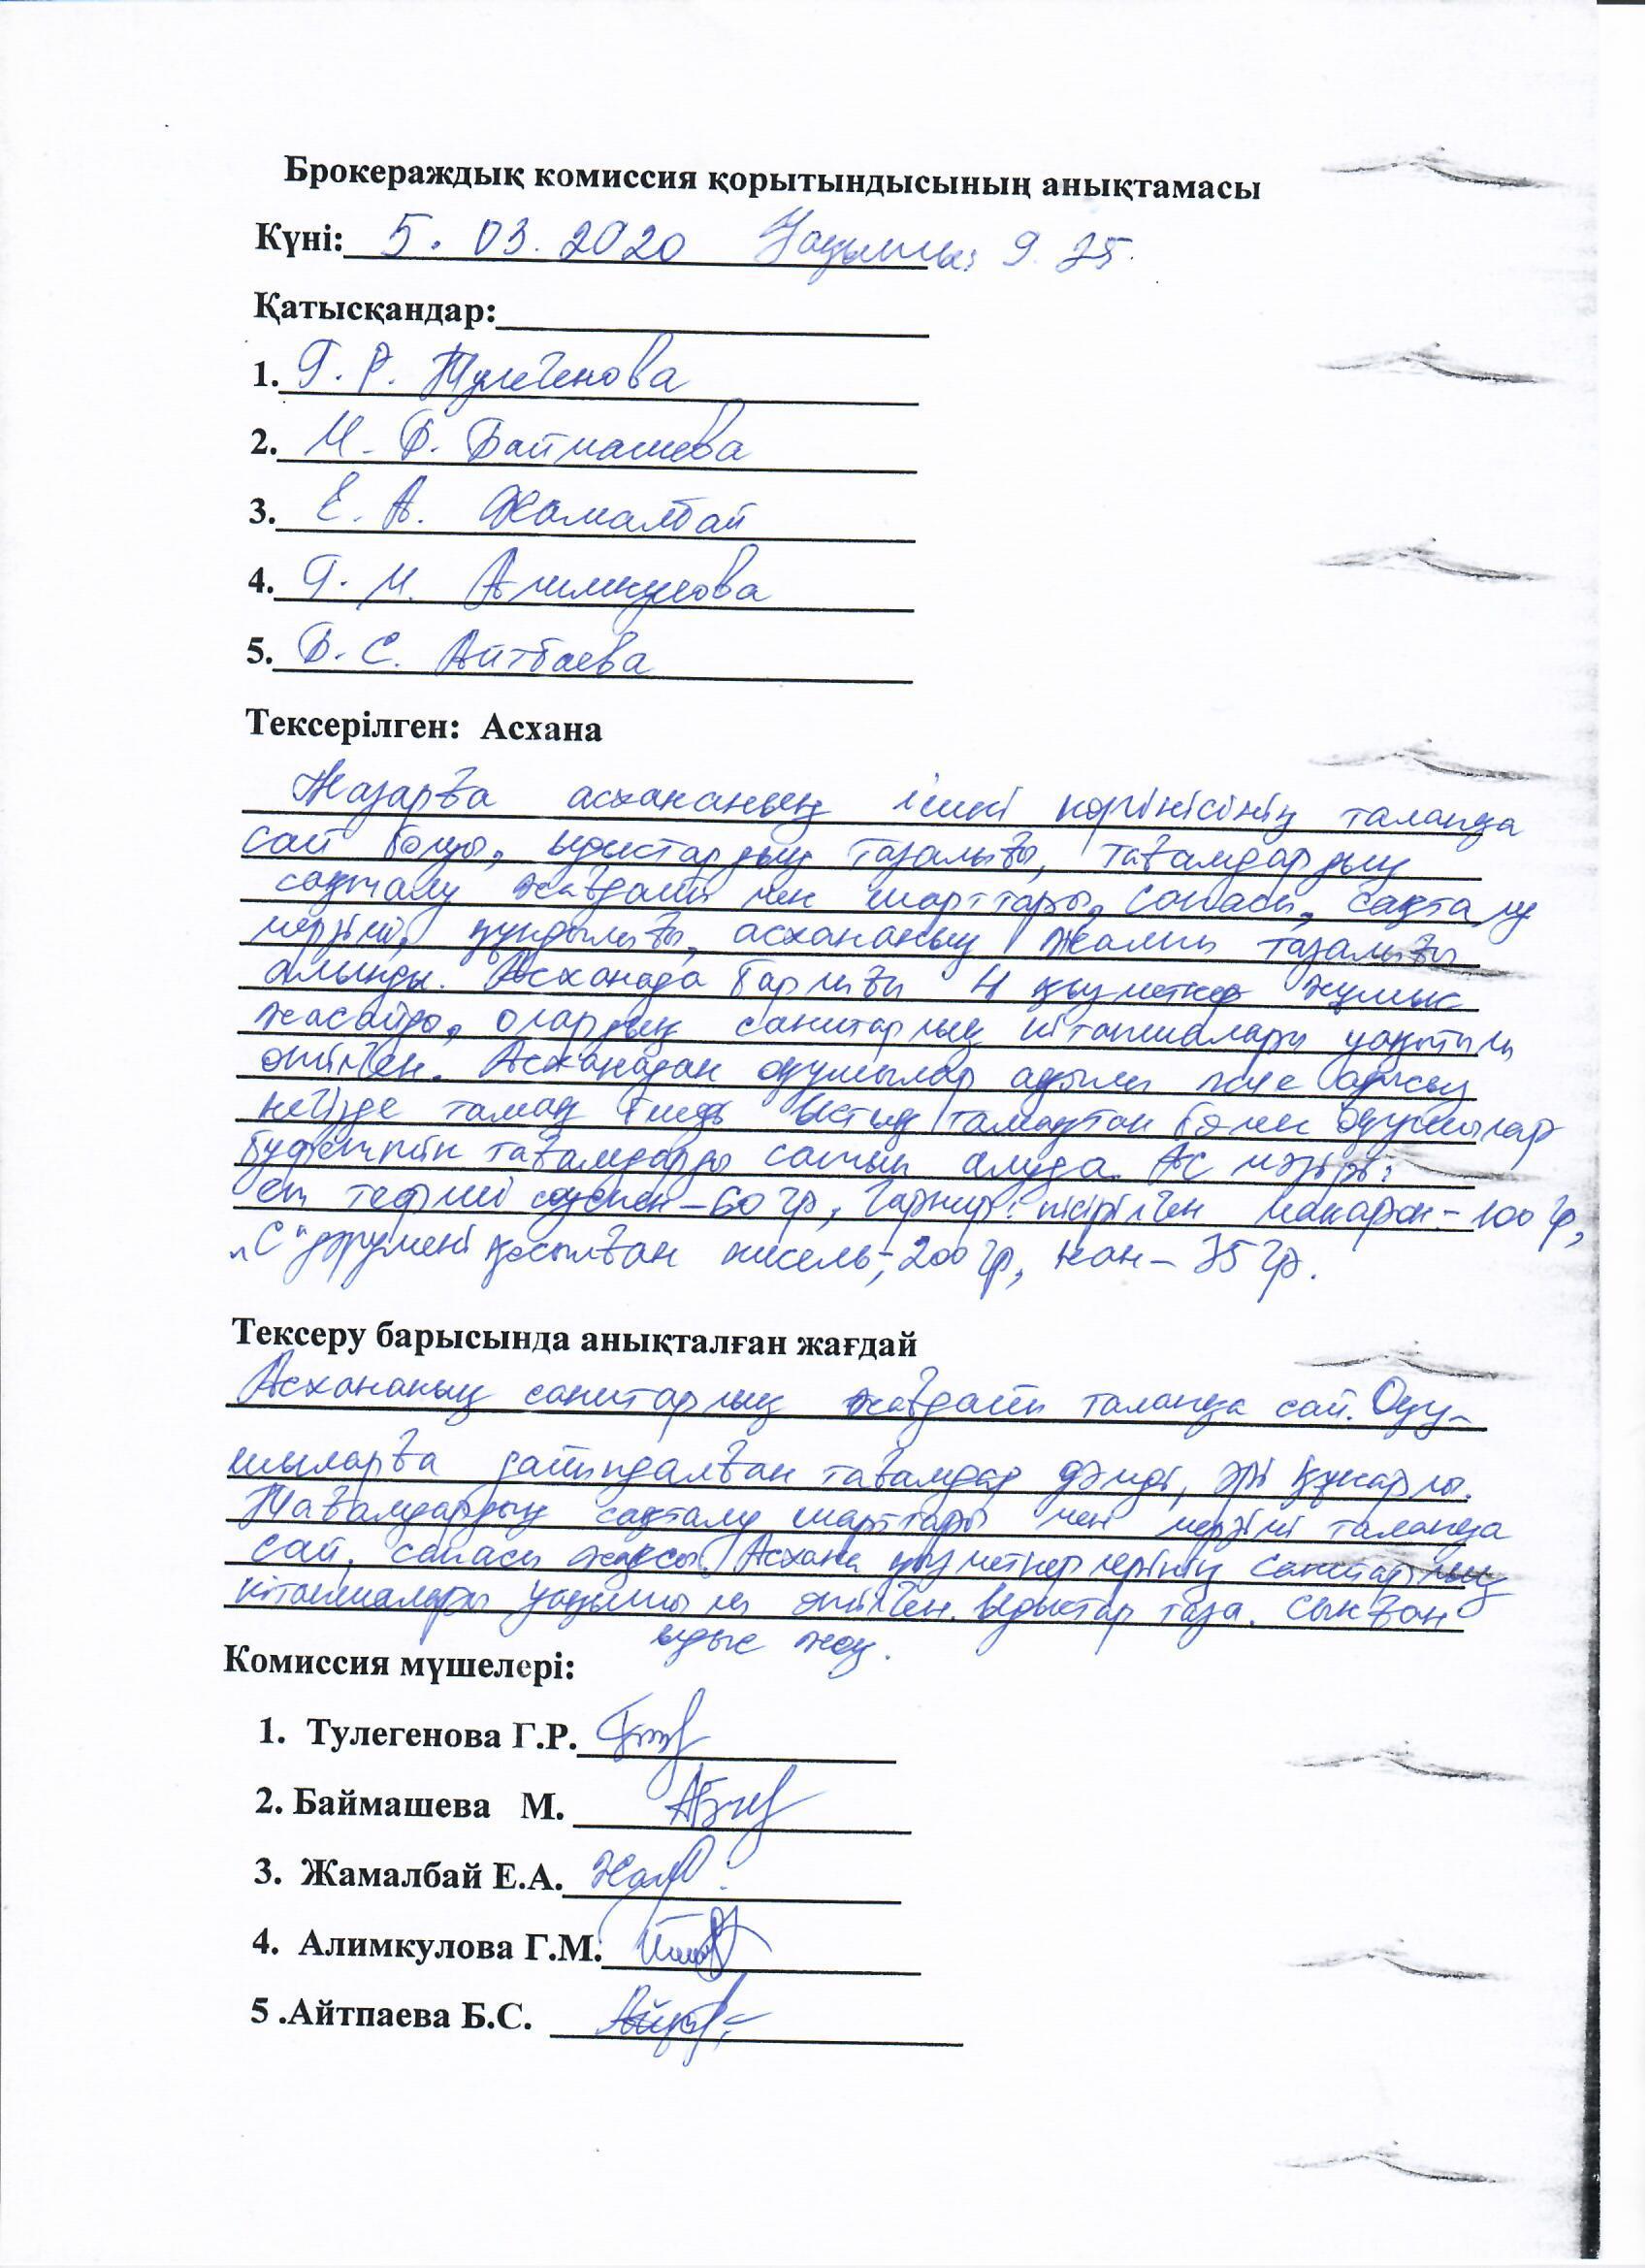 Брокераждық комиссия қорытындысының анықтамасы
Күні: 5. 03. 2020 Уақыты: 9. 35.
Қатысқандар:
1. Г. Р. Тулегенова
2. М. Б. Баймашева
3. Е. А. Жамалбай
4. Г. М. Алимкулова
5. Б. С. Айтбаева
Тексерілген: Асхана
Назарға асхананың ішкі көрінісінің талапқа
сай болуы, ыдыстардың тазалығы, тағамдардың
сақталу жағдайы мен шарттары, сапасы, сақталу
мерзімі, құндылығы, асхананың жалпы тазалығы
алынды. Асханада барлығы 4 қызметкер жұмыс
жасайды, олардың санитарлық кітапшалары уақытылы
өтілген. Асханадан оқушылар ақылы және ақысыз
негізде тамақ ішеді. Ыстық тамақтан бөлек оқушылар
буфеттің тағамдарды сатып алуда. Ас мәзірі:
ет тефтелі соуспен - 60 гр, Гарнир: пісірілген макарон - 100 гр,
„С" дәрумені қосылған кисель - 200 гр, нан - 35 гр.
Тексеру барысында анықталған жағдай
Асхананың санитарлық жағдайы талапқа сай. Оқу-
шыларға дайындалған тағамдар дәмді, әрі құнарлы.
Тағамдардың сақталу шарттары мен мерзімі талапқа
сай, сапасы жақсы. Асхана қызметкерлерінің санитарлық
кітапшалары уақытылы өтілген. Ыдыстар таза. Сынған
ыдыс жоқ.
Комиссия мүшелері:
1. Тулегенова Г.Р.
2. Баймашева М.
3. Жамалбай Е.А.
4. Алимкулова Г.М.
5 .Айтпаева Б.С.